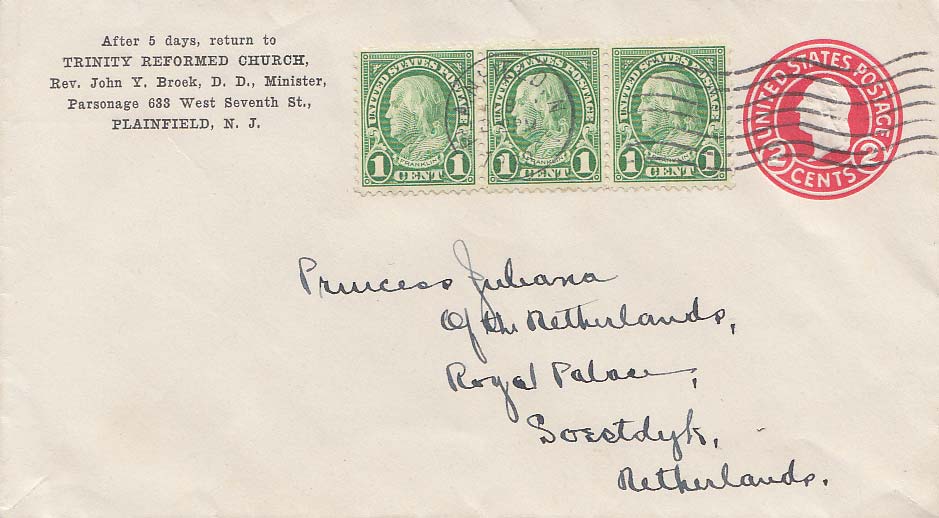 After 5 days, return to
TRINITY REFORMED CHURCH,
Rev. John Y. Broek, D. D., Minister,
Parsonage 633 West Seventh St.,
PLAINFIELD, N. J.
UNITED STATES POSTAGE
FRANKLIN
1 CENT 1
UNITED STATES POSTAGE
FRANKLIN
1 CENT 1
UNITED STATES POSTAGE
FRANKLIN
1 CENT 1
UNITED STATES POSTAGE
2 CENTS 2
Princess Juliana
Of the Netherlands,
Royal Palace,
Soestdyk,
Netherlands.